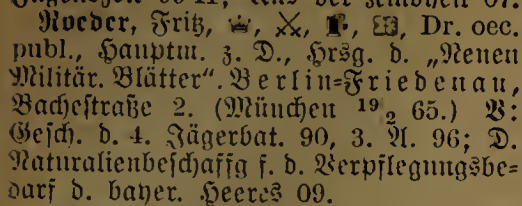 Roeder, Fritz, Dr. oec.
publ., Hauptm. z. D., Hrsg. d. „Neuen
Militär. Blätter“. Berlin=Friedenau,
Bachestraße 2. (München 19/2 65.) V:
Gesch. d. 4. Jägerbat. 90, 3. A. 96; D.
Naturalienbeschaffg f. d. Verpflegungsbe=
darf d. bayer. Heeres 09.